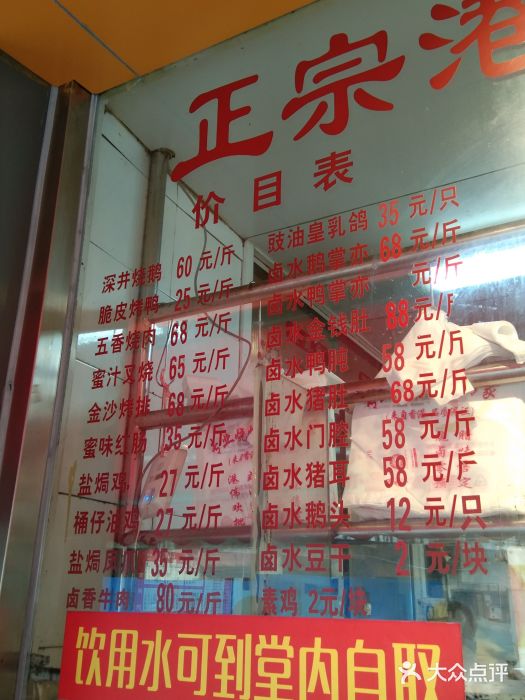 正宗港
价目表
深井烧鹅 60元/斤
脆皮烤鸭 25元/斤
五香烧肉 68元/斤
蜜汁叉烧 65元/斤
金沙烤排 68元/斤
蜜味红肠 35元/斤
盐焗鸡 27元/斤
桶仔油鸡 27元/斤
盐焗凤爪 35元/斤
卤香牛肉 80元/斤
豉油皇乳鸽 35元/只
卤水鹅掌亦 68元/斤
卤水鸭掌亦 元/斤
卤水金钱肚 88元/斤
卤水鸭肫 58元/斤
卤水猪肚 68元/斤
卤水门腔 58元/斤
卤水猪耳 58元/斤
卤水鹅头 12元/只
卤水豆干 2元/块
素鸡 2元/块
饮用水可到堂内自取
大众点评